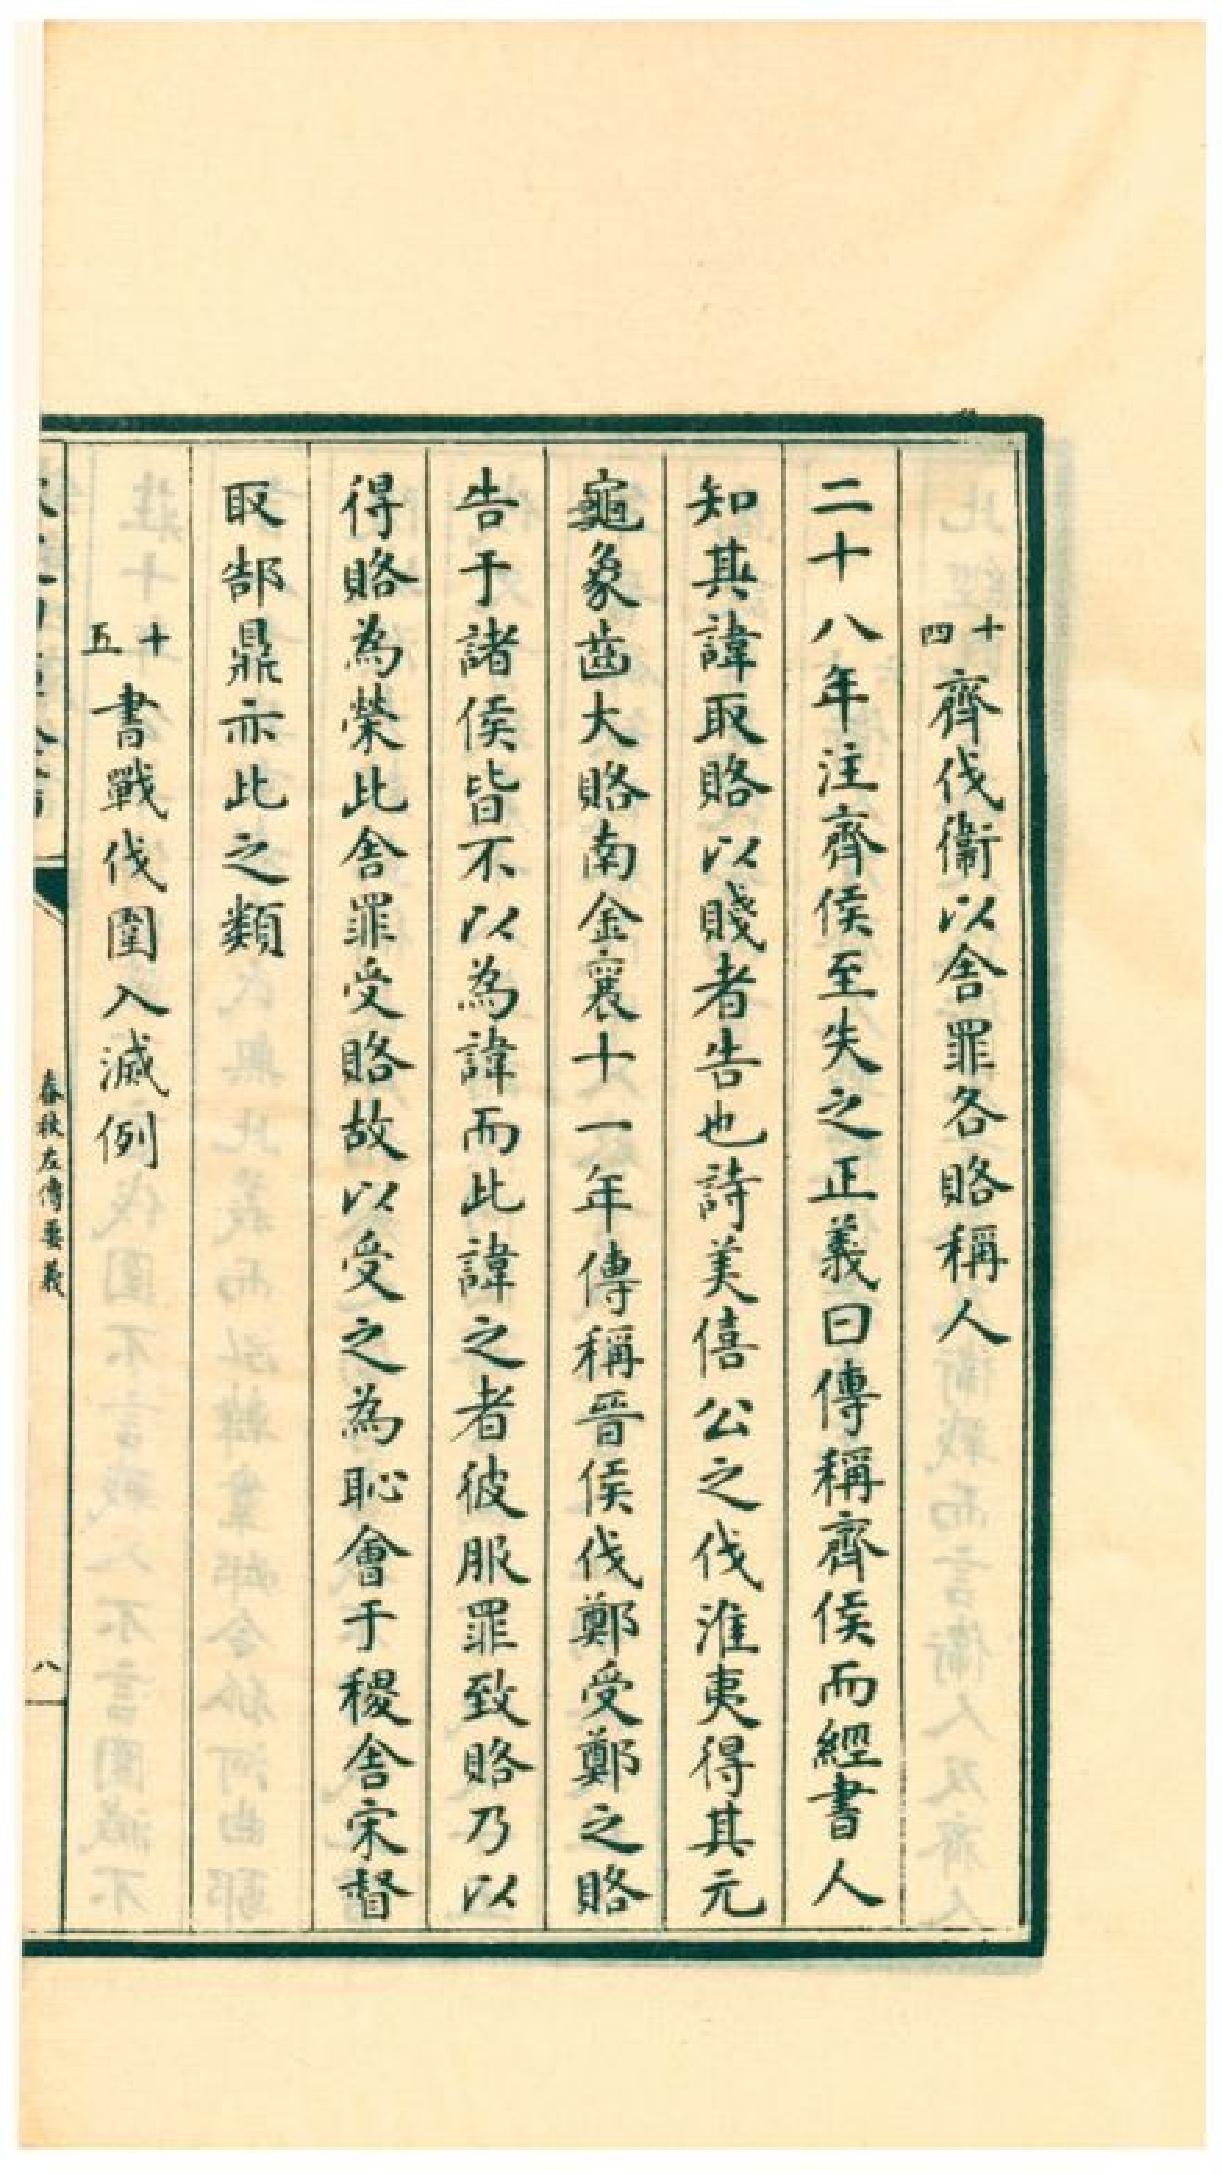 十四 齊伐衞以舍罪各賂稱人
二十八年注齊侯至失之正義曰傳稱齊侯而經書人
知其諱取賂以賤者告也詩美僖公之伐淮夷得其元
龜象齒大賂南金襄十一年傳稱晉侯伐鄭受鄭之賂
告于諸侯皆不以為諱而此諱之者彼服罪致賂乃以
得賂為榮此舍罪受賂故以受之為恥會于稷舍宋督
取郜鼎亦此之類
十五 書戰伐圍入滅例
春秋左傳要義
八